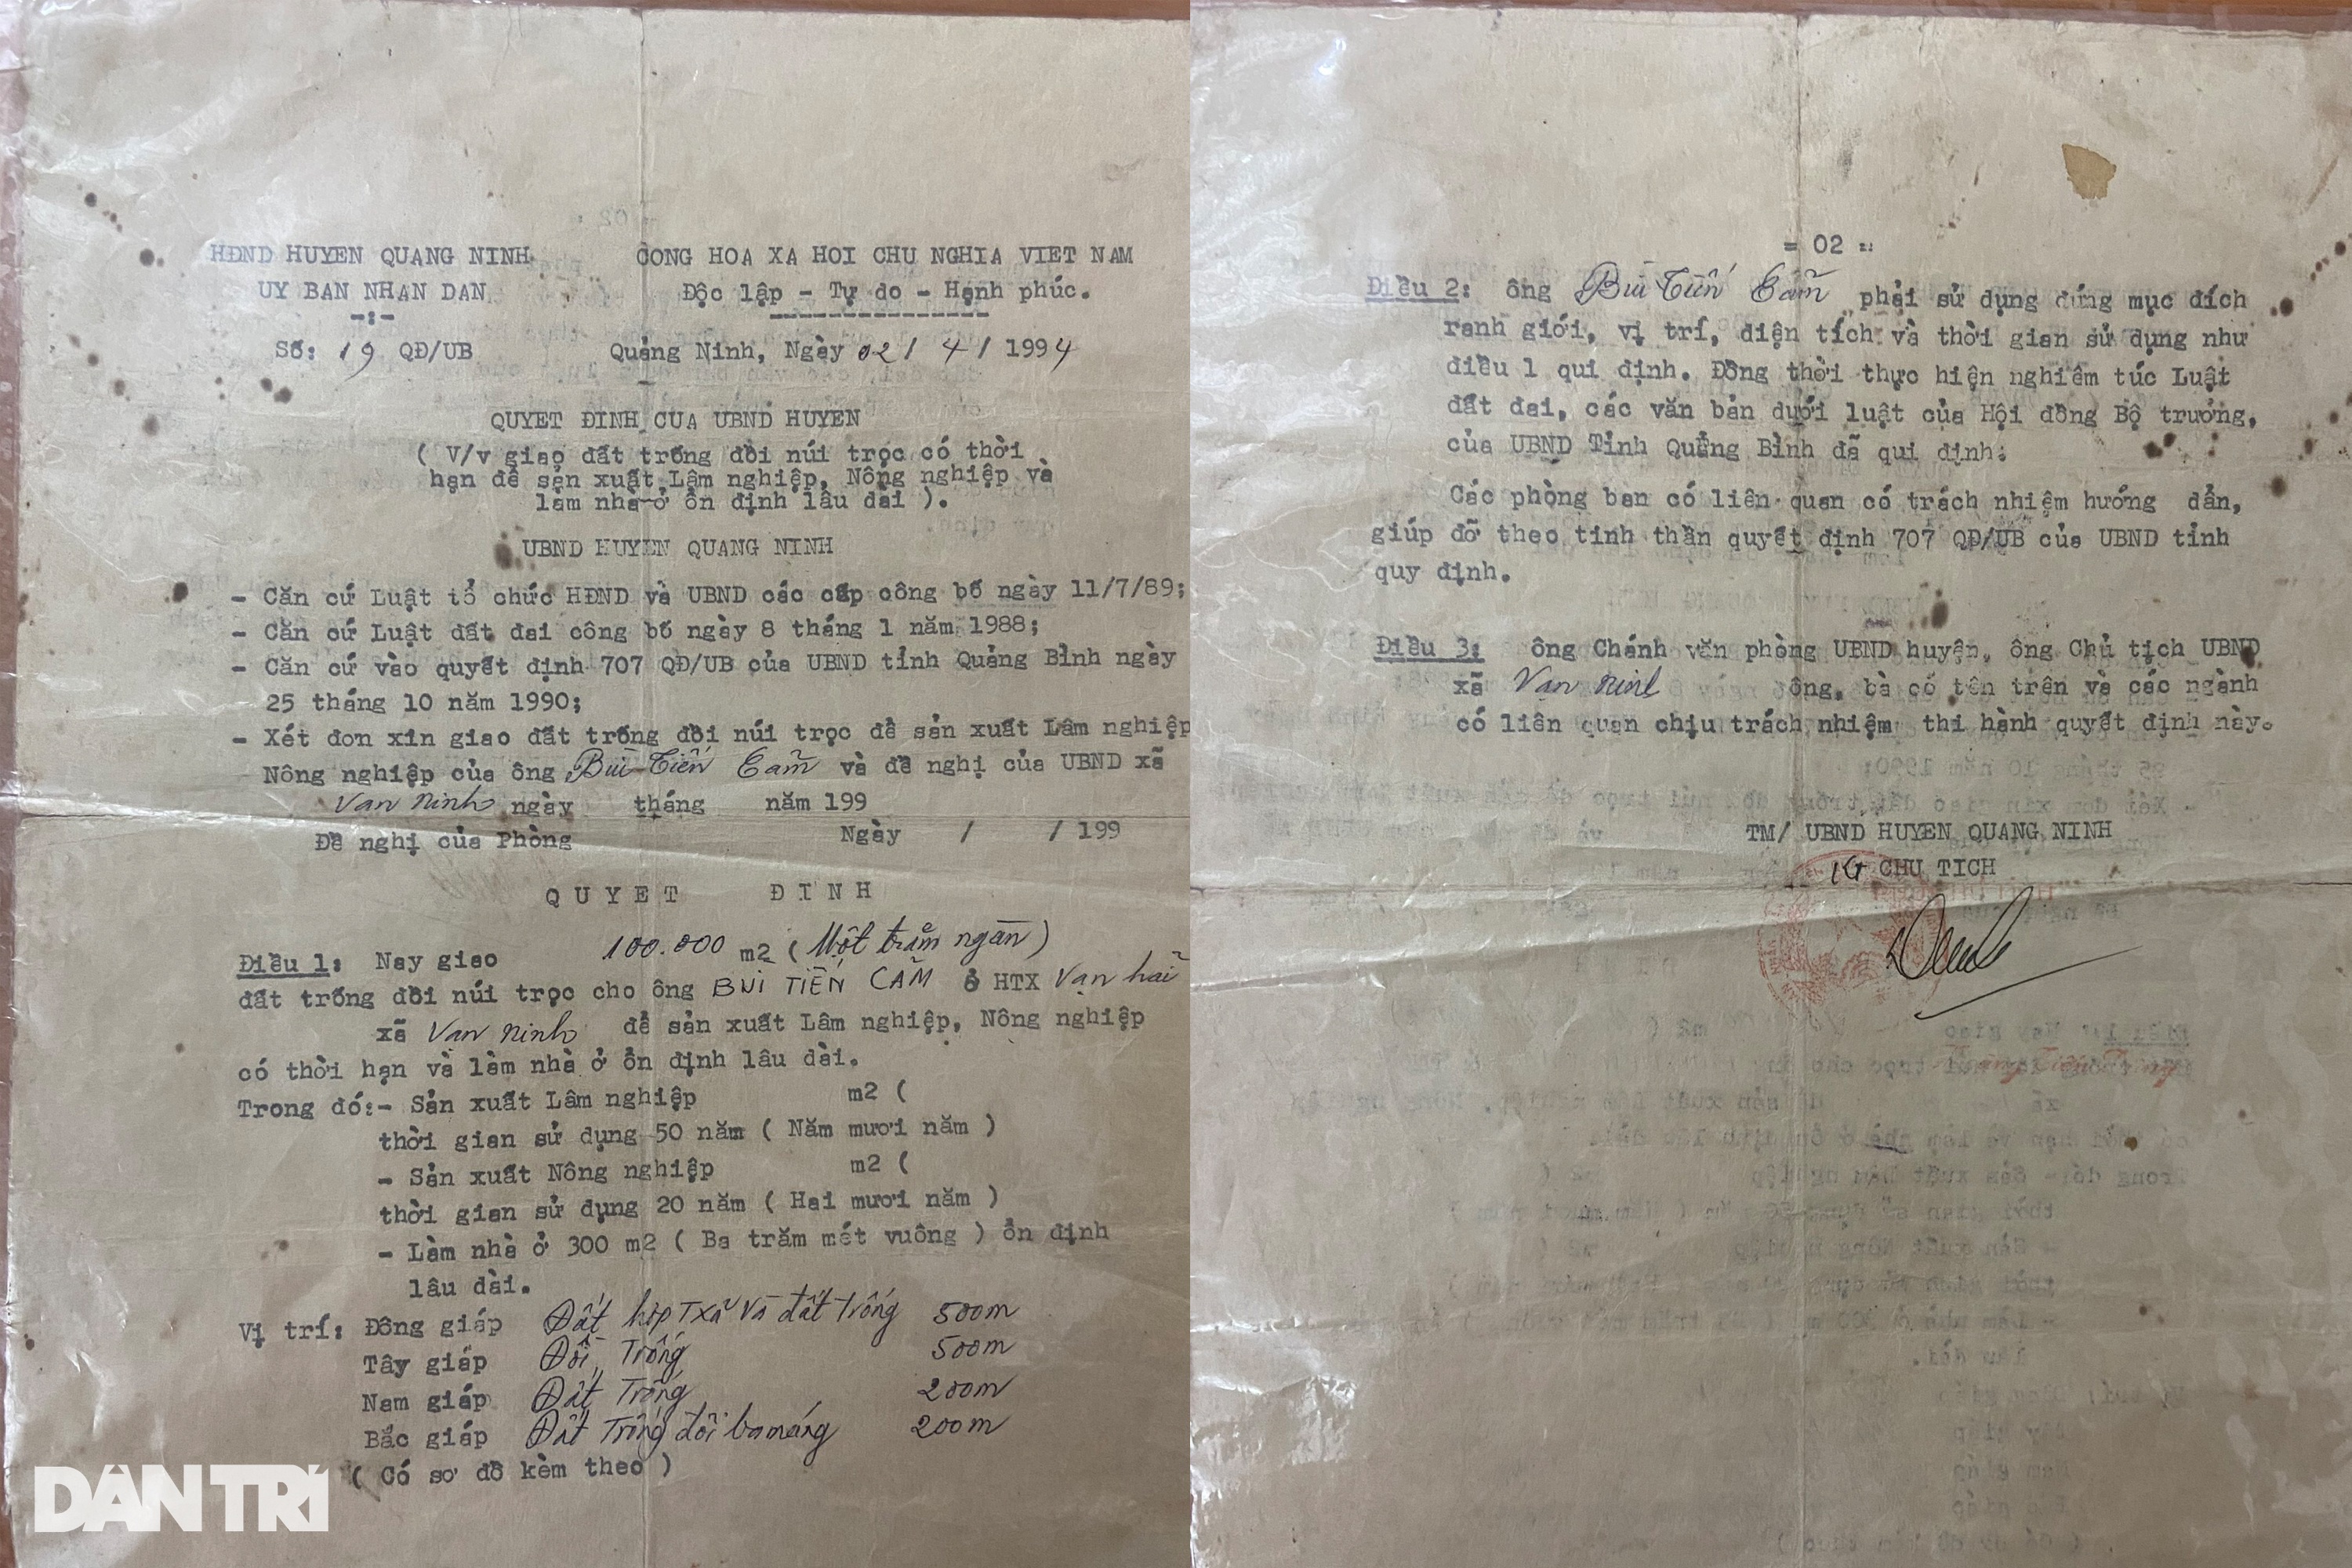 HĐND HUYEN QUANG NINH
UY BAN NHAN DAN
-:-
Số: 19 QĐ/UB
CONG HOA XA HOI CHU NGHIA VIET NAM
Độc lập - Tự do - Hạnh phúc.
Quảng Ninh, Ngày 02/ 4/ 1994
QUYET ĐINH CUA UBND HUYEN
( V/v giao đất trống đồi núi trọc có thời
hạn để sản xuất Lâm nghiệp, Nông nghiệp và
làm nhà ở ổn định lâu dài ).
UBND HUYEN QUANG NINH
- Căn cứ Luật tổ chức HĐND và UBND các cấp công bố ngày 11/7/89;
- Căn cứ Luật đất đai công bố ngày 8 tháng 1 năm 1988;
- Căn cứ vào quyết định 707 QĐ/UB của UBND tỉnh Quảng Bình ngày
25 tháng 10 năm 1990;
- Xét đơn xin giao đất trống đồi núi trọc để sản xuất Lâm nghiệp
Nông nghiệp của ông Bùi Tiến Cẫm và đề nghị của UBND xã
Vạn Ninh ngày tháng năm 199
Đề nghị của Phòng Ngày / / 199
QUYET ĐINH
Điều 1: Nay giao 100.000 m2 ( Một trăm ngàn )
đất trống đồi núi trọc cho ông BUI TIẾN CẪM ở HTX Vạn hải
xã Vạn Ninh để sản xuất Lâm nghiệp, Nông nghiệp
có thời hạn và làm nhà ở ổn định lâu dài.
Trong đó:- Sản xuất Lâm nghiệp m2 (
thời gian sử dụng 50 năm ( Năm mươi năm )
- Sản xuất Nông nghiệp m2 (
thời gian sử dụng 20 năm ( Hai mươi năm )
- Làm nhà ở 300 m2 ( Ba trăm mét vuông ) ổn định
lâu dài.
Vị trí: Đông giáp Đất và đất trống 500m
Tây giáp Đồi Trống 500m
Nam giáp Đất Trống 200m
Bắc giáp Đất Trống đồi 200m
( Có sơ đồ kèm theo )
DÂN TRÍ
= 02 =
Điều 2: ông Bùi Tiến Cẫm phải sử dụng đúng mục đích
ranh giới, vị trí, diện tích và thời gian sử dụng như
điều 1 qui định. Đồng thời thực hiện nghiêm túc Luật
đất đai, các văn bản dưới luật của Hội đồng Bộ trưởng,
của UBND Tỉnh Quảng Bình đã qui định.
Các phòng ban có liên quan có trách nhiệm hướng dẫn,
giúp đỡ theo tinh thần quyết định 707 QĐ/UB của UBND tỉnh
quy định.
Điều 3: ông Chánh văn phòng UBND huyện, ông Chủ tịch UBND
xã Vạn Ninh ông, bà có tên trên và các ngành
có liên quan chịu trách nhiệm thi hành quyết định này.
TM/ UBND HUYEN QUANG NINH
KT CHU TICH